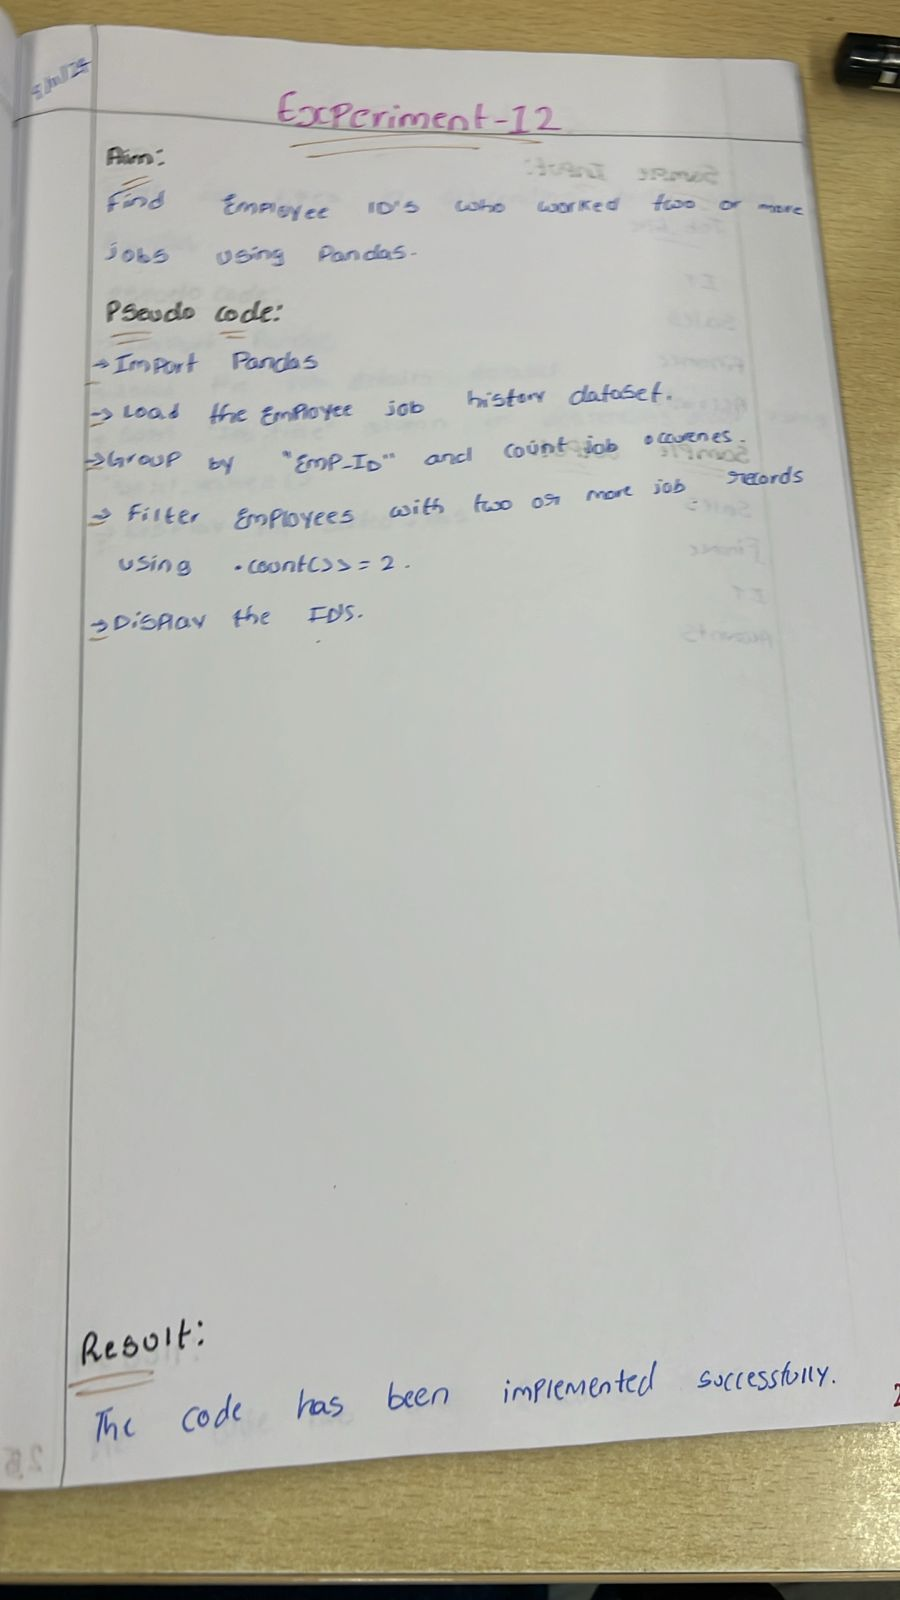 Experiment-12
Aim:
Find Employee ID's who worked two or more
jobs using Pandas.
Pseudo code:
→ Import Pandas
→ Load the Employee job history dataset.
→ Group by "Emp-ID" and count job occurenes.
→ Filter Employees with two or more job records
using .count()>=2.
→ Display the ID's.
Result:
The code has been implemented successfully.